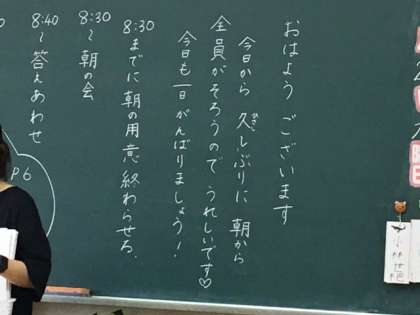 おはよう ございます
今日から 久しぶりに 朝から
全員がそろうので うれしいです♡
今日も一日がんばりましょう!
8:30までに 朝の用意 終わらせる.
8:30〜 朝の会
8:40〜 答えあわせ
P6